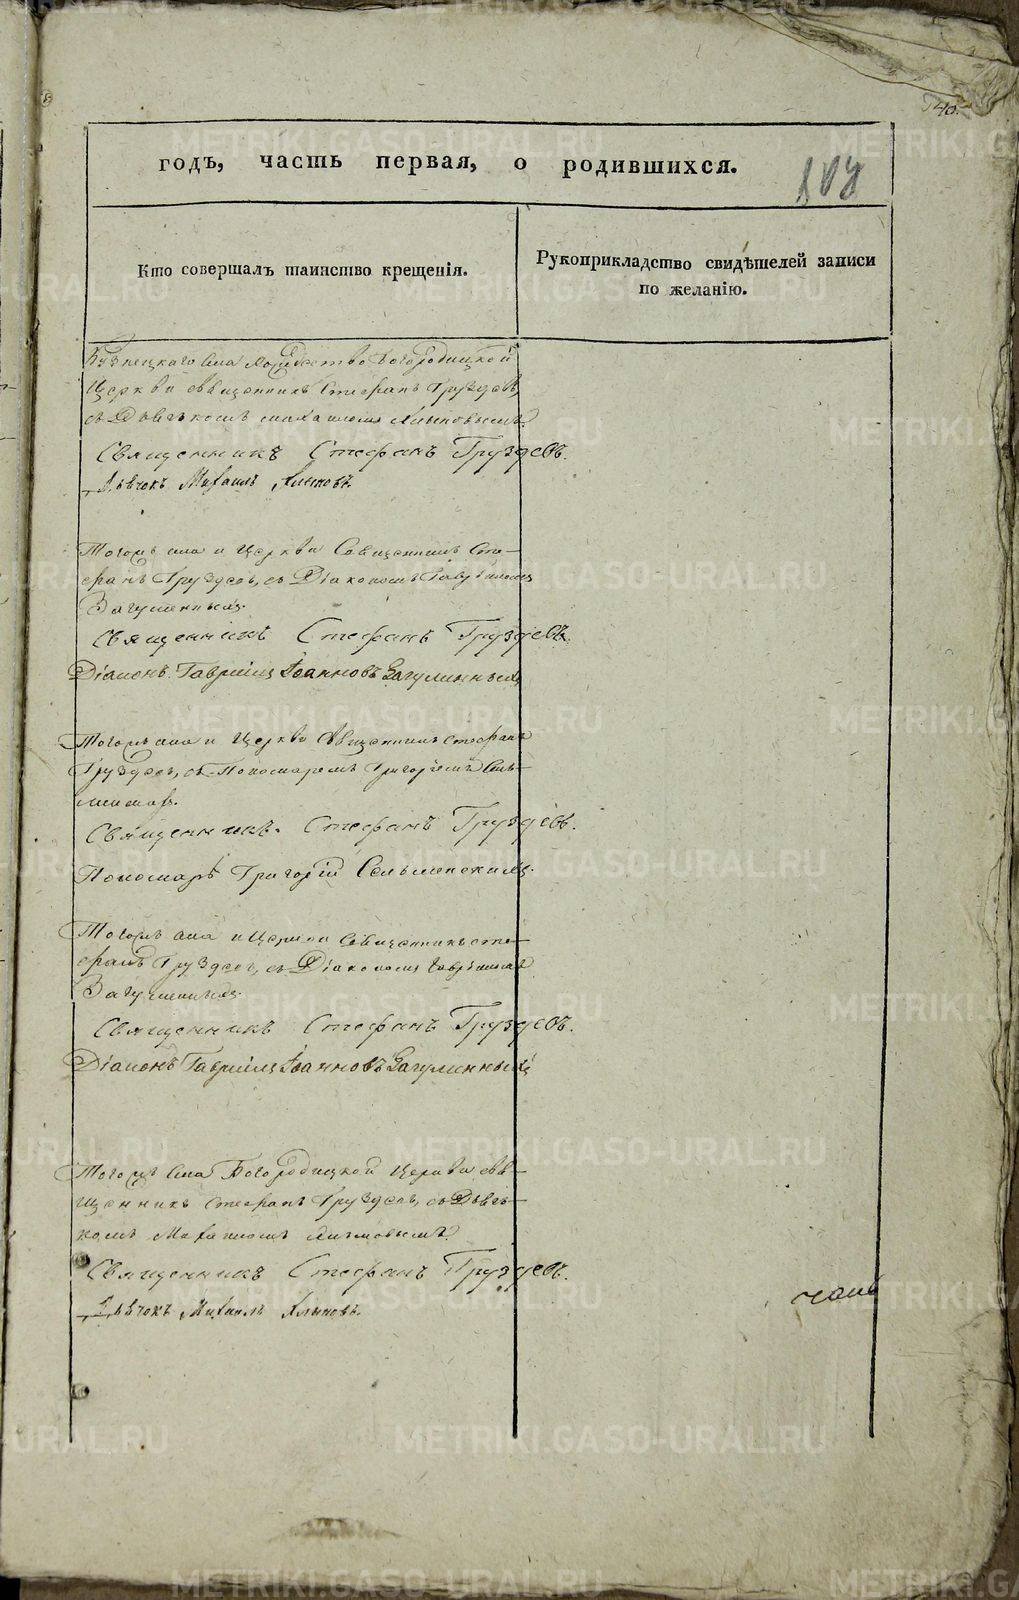 40.
годъ, часть первая, о родившихся.
Кто совершалъ таинство крещенія.
Рукоприкладство свидѣтелей записи
по желанію.
Кузнецкаго села Рождество Богородицкой
Церкви священникъ Стефанъ Груздевъ,
съ Дьячкомъ Михаиломъ
Священникъ Стефанъ Груздевъ.
Дьячокъ Михаилъ
Тогожъ села и Церкви Священникъ Сте-
фанъ Груздевъ, съ Діакономъ Гавріиломъ
Загуменнымъ.
Священникъ Стефанъ Груздевъ.
Діаконъ Гавріилъ Іоанновъ Загуменный
Тогожъ села и Церкви Священникъ Стефанъ
Груздевъ, съ Пономаремъ Григоріемъ
Священникъ Стефанъ Груздевъ.
Пономарь Григорій Сельменскихъ
Тогожъ села и Церкви Священникъ Сте-
фанъ Груздевъ, съ Діакономъ Гавріиломъ
Загуменнымъ
Священникъ Стефанъ Груздевъ.
Діаконъ Гавріилъ Іоанновъ Загуменный
Тогожъ села Богородицкой Церкви свя-
щенникъ Стефанъ Груздевъ, съ Дьяч-
комъ Михаиломъ
Священникъ Стефанъ Груздевъ.
Дьячокъ Михаилъ
METRIKI.GASO-URAL.RU